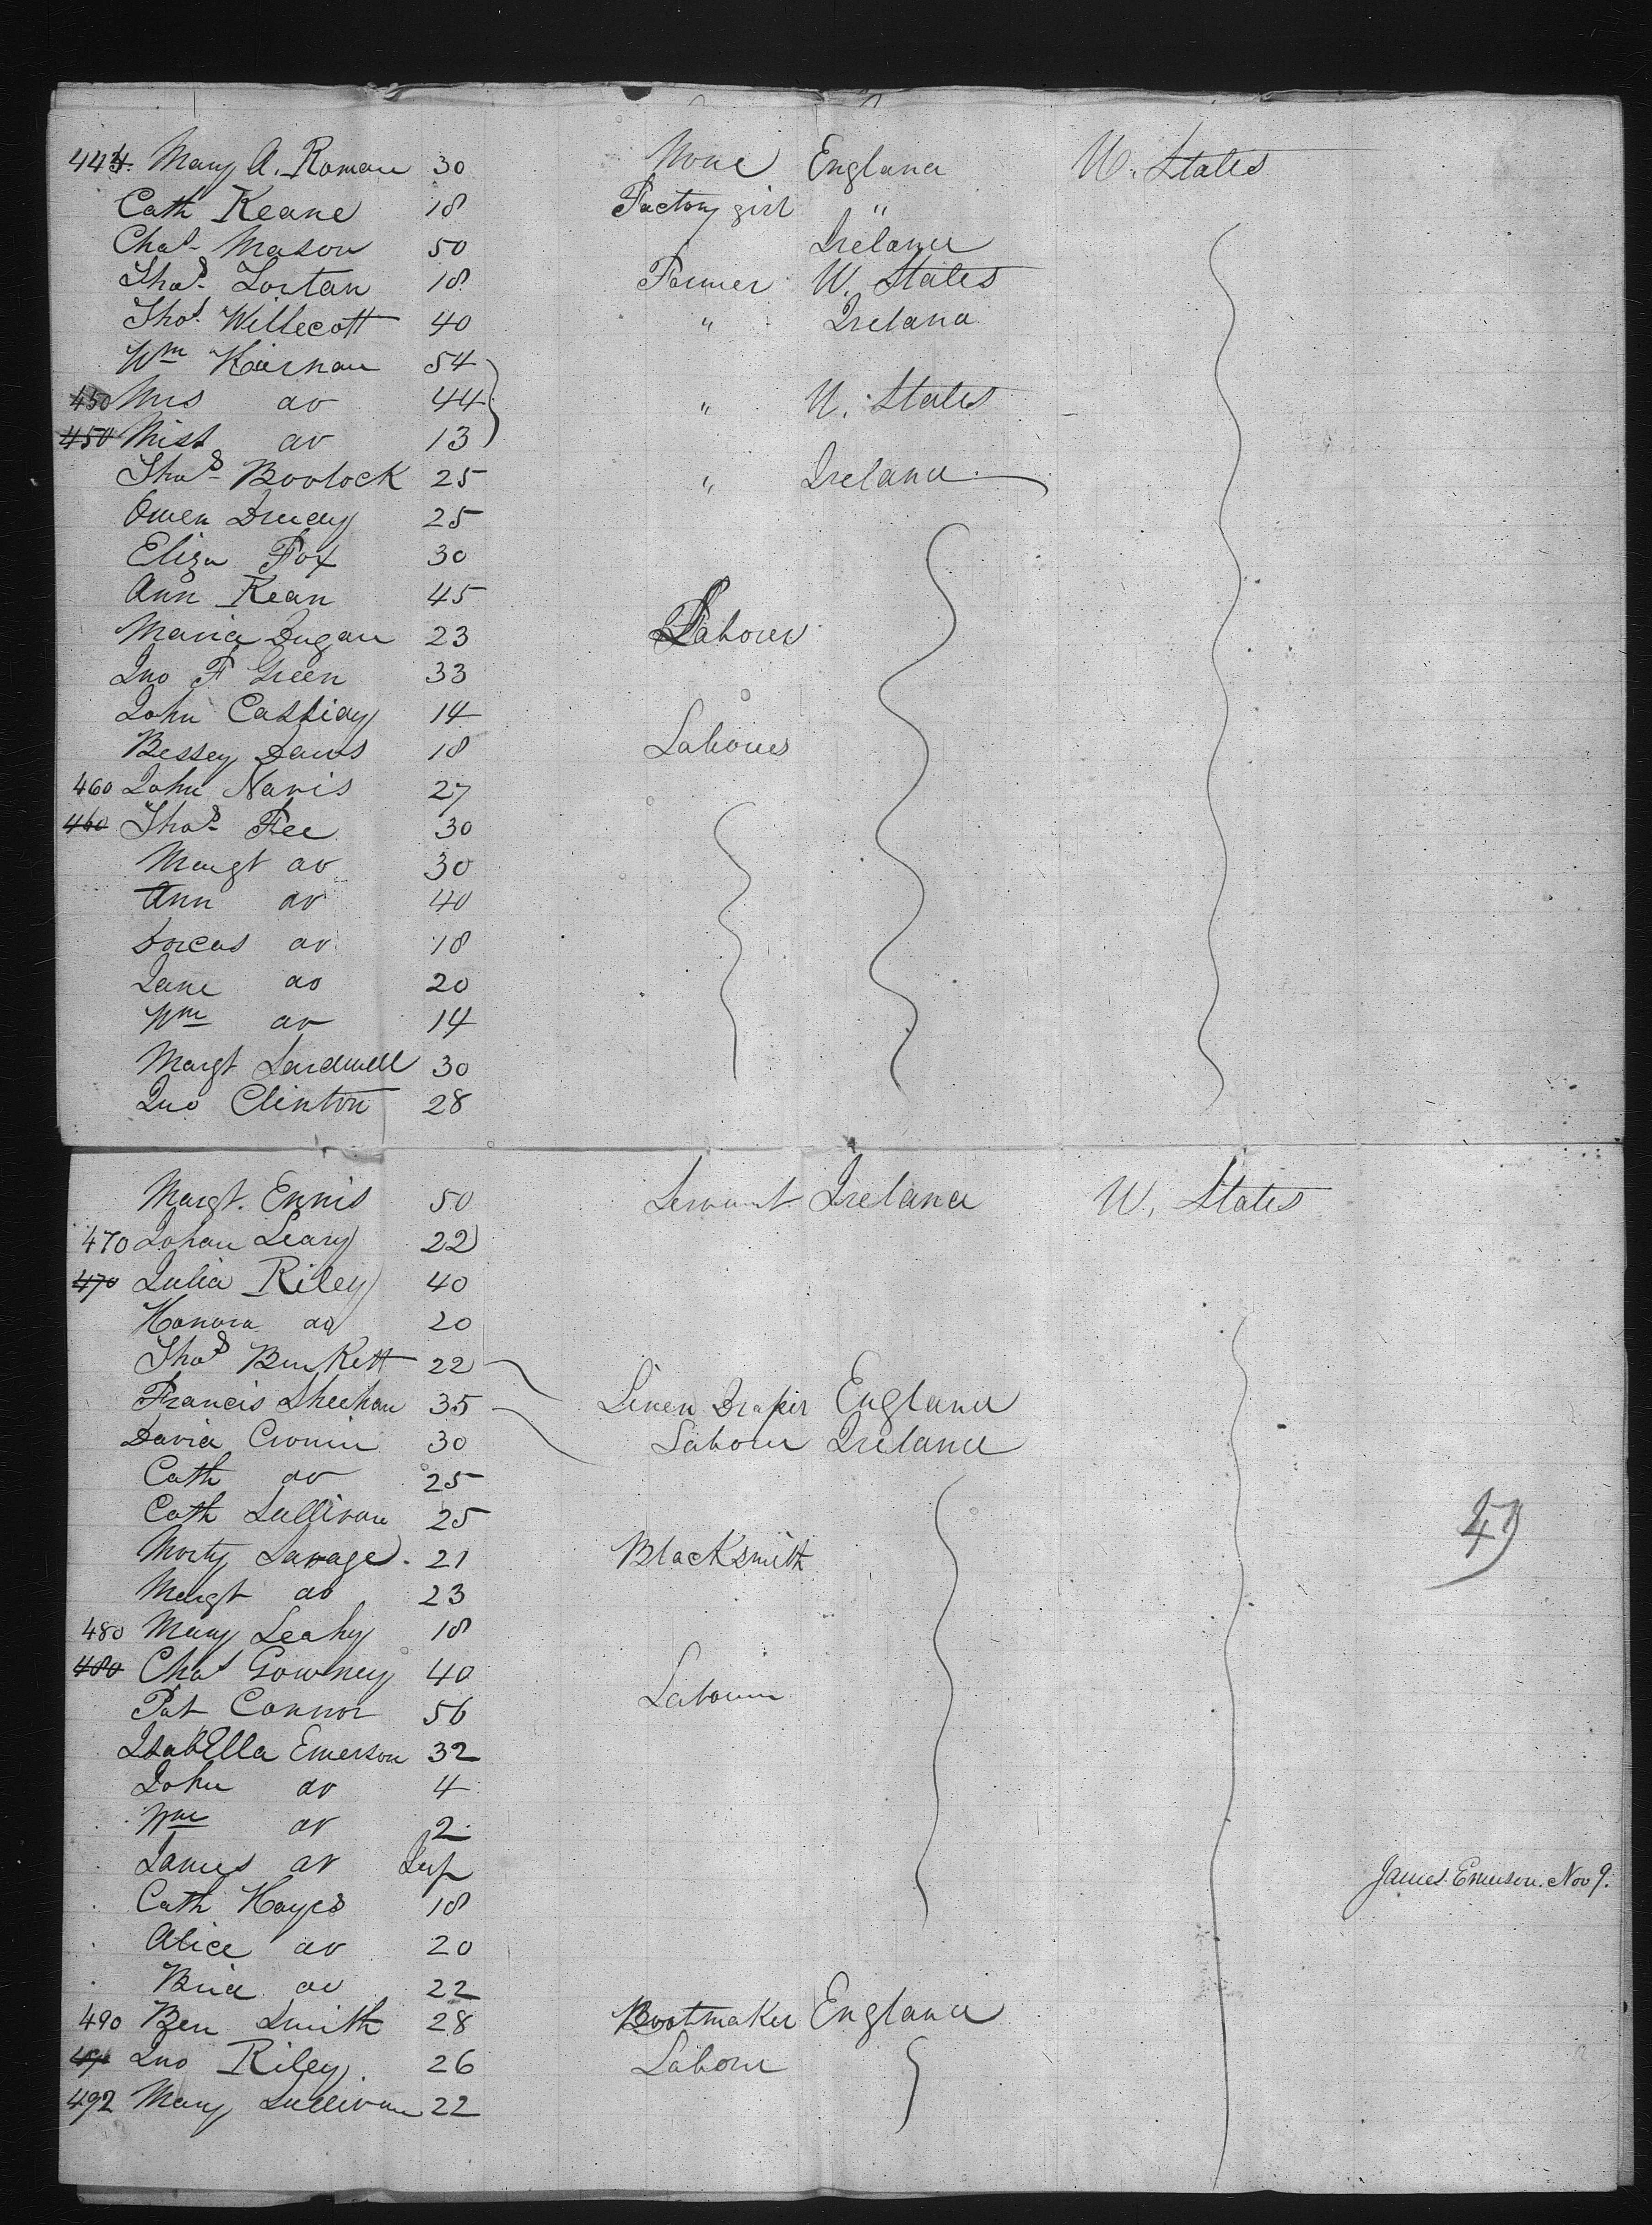 444 Mary A. Roman 30 None England U. States
Cath Keane 18 Factory girl "
Chas Mason 50 Ireland
Thos Lortan 18 Farmer U. States
Thos Willecott 40 " Ireland
Wm Kiernan 54
450 Mrs do 44 " U. States
450 Miss do 13
Thos Boolock 25 " Ireland
Owen Drudy 25
Eliza Fox 30
Ann Kean 45
Maria Dugan 23 Labourer
Jno F Green 33
John Cassidy 14
Bessey Daws 18 Labourer
460 John Navis 27
460 Thos Fee 30
Margt do 30
Ann do 40
Dorcas do 18
Jane do 20
Wm do 14
Margt 30
Jno Clinton 28
Margt. Ennis 50 Servant Ireland U. States
470 Johan Leary 22
470 Julia Riley 40
Honora do 20
Thos Burkett 22
Francis Sheehan 35 Linen Draper England
David Cronin 30 Labour Ireland
Cath do 25
Cath Sullivan 25
Morty Savage 21 Blacksmith
Margt do 23
480 Mary Leahy 18
480 Chas Gowney 40
Pat Connor 56 Labourer
Isabella Emerson 32
John do 4
Wm do 2
James do Inf James Emerson. Nov 9.
Cath Hayes 18
Alice do 20
Brid do 22
490 Ben Smith 28 Bootmaker England
Jno Riley 26 Labour
492 Mary Sullivan 22